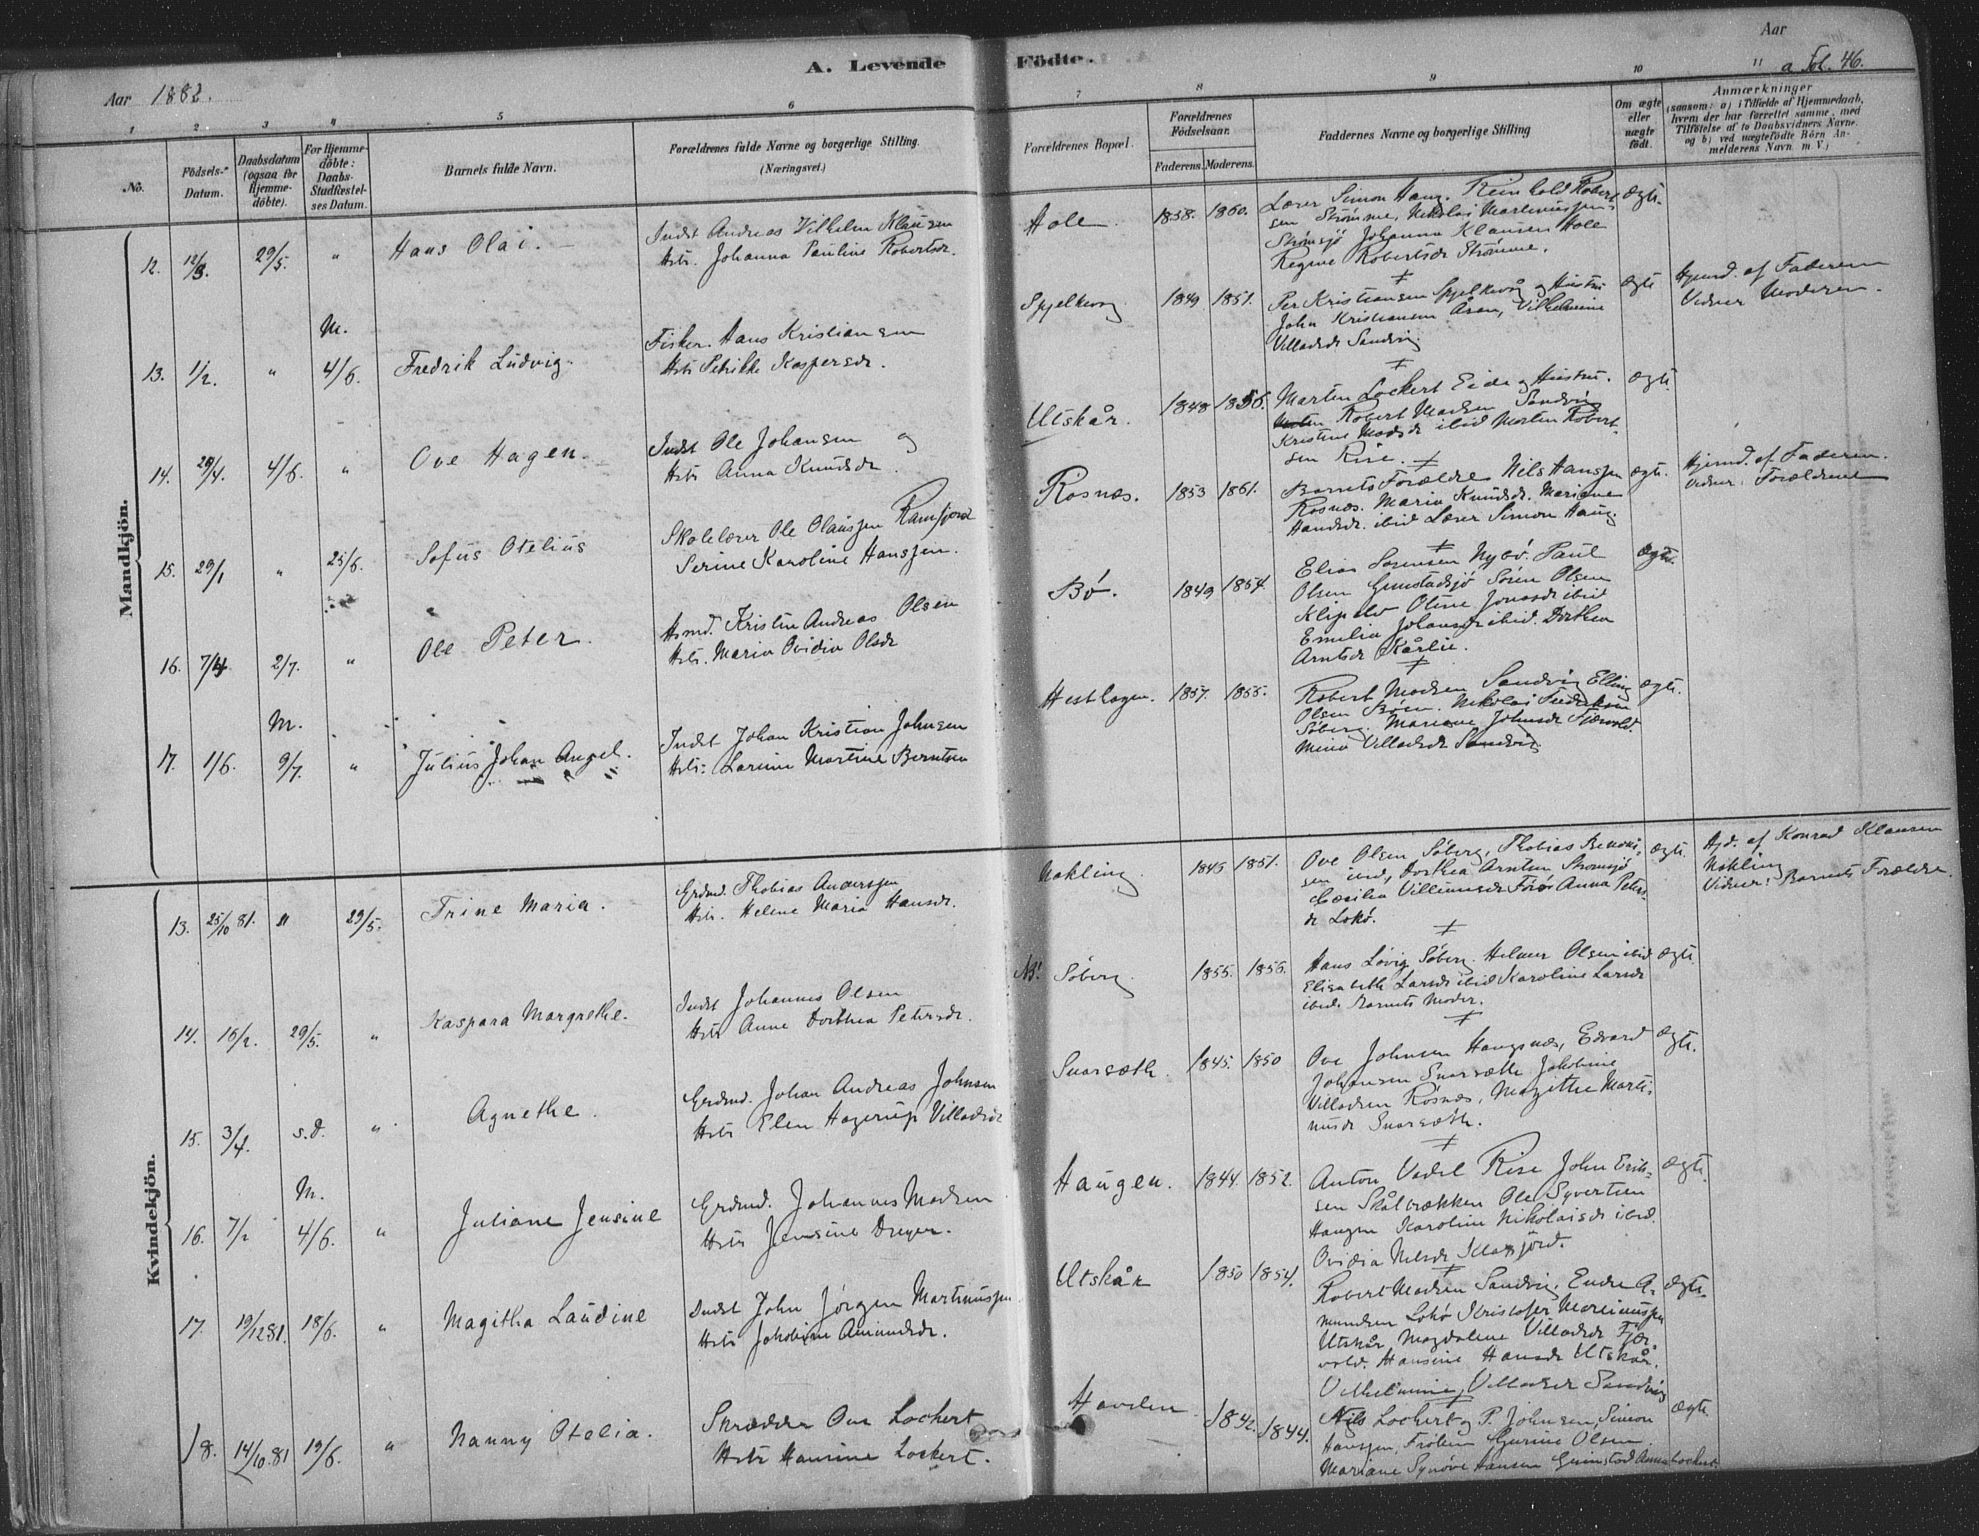 A. Levende Födte.
Aar
a Fol. 46.
Aar 1882.
1 2 3 4 5 6 7 8 9 10 11
No.
Födsels-Datum.
Daabsdatum (ogsaa for Hjemmedöbte).
For Hjemmedöbte: Daabs-Stadfæstelses Datum.
Barnets fulde Navn.
Forældrenes fulde Navne og borgerlige Stilling. (Næringsvei.)
Forældrenes Bopæl.
Forældrenes Födselsaar.
Faderens. Moderens.
Faddernes Navne og borgerlige Stilling
Om ægte eller uægte födt.
Anmærkninger
(saasom: a) i Tilfælde af Hjemmedaab, hvem der har forrettet samme, med Tilföielse af to Daabsvidners Navne. og b) ved uægtefödte Börn Anmelderens Navn m V.)
Mandkjön.
12. 12/3. 29/5. " Hans Olai.
Indst Andreas Vilhelm Klausen
Hstr. Johanna Pauline Robertsdr.
Hole 1858. 1860.
Lærer Simon Haug. Reinhold Robert-
sen Strømme, Nikolai Martinussen
Strømsjø Johanna Klausen Hole
Regine Robertsdr Strömme.
ægte.
M.
13. 1/2. " 4/6. Fredrik Ludvig.
Fisker. Hans Kristiansen
Hstr Petrikke Kaspersdr.
Spjelkevog 1849 1851.
Per Kristiansen Spjelkevåg og Hustru
John Kristiansen Åsan, Vilhelmine
Villadsdr Sandvig.
ægte
Hjemd. af Faderen
Vidner Moderen.
14. 29/4. 4/6. " Ove Hagen.
Indst Ole Johansen og
Hstr Anna Knudsdr.
Utskår. 1848 1856.
Martin Lockert Eide og Hustru.
Robert Madsen Sandvig
Kristine Madsdr ibid Morten Robert-
sen Rise.
ægte.
15. 29/1 " 25/6. Sofus Otelius
Skolelærer Ole Olaussen Ramfjord
Serine Karoline Hanssen.
Rosnæs. 1853 1861.
Barnets Forældre Nils Hanssen
Rosnæs. Maria Knudsdr. Mariane
Hansdr. ibid Lærer Simon Haug.
ægte.
Hjemd. af Faderen.
Vidner: Forældrene
16. 7/4 2/7. " Ole Peter.
Hsmd. Kristen Andreas Olsen
Hstr. Maria Ovidia Olsdr
Bö. 1849 1854.
Elias Sørensen Nybö. Paul
Olsen Grunstadsjö Sören Olsen
Oline Jonasdr ibid
Emilia Johansdr ibid. Dorthea
Arntsdr Kårlie.
ægte.
M.
17. 1/6. 9/7. " Julius Johan Angel.
Indst Johan Kristian Johnsen
Hstr. Larine Martine Berntsen
Hesthagen. 1857. 1855.
Robert Madsen Sandvig Elling
Olsen Böen. Nikolai Fredriksen
Søberg. Mariane Johnsdr Fjærvold.
Mina Villadsdr Sandvig.
ægte.
Kvindekjön.
13. 25/10 81. " 29/5. Trine Maria.
Grdmd. Thobias Anderssen
Hstr. Helene Maria Hansdr.
Nökling 1845 1851.
Ove Olsen Söberg, Thobias
sen ibid, Dorthea Arntsen Strømsjö
Cæsilia Villumsdr Anna Peters-
dr Lokö.
ægte.
Hjd. af Konrad Klausen
Nökling
Vidner: Barnets Forældre.
14. 16/2. 29/5. " Kaspara Margrethe.
Indst Johannes Olsen
Hstr Anne Dorthea Petersdr.
NB! Söberg 1855. 1856.
Hans Lövig Söberg. Helmer Olsen ibid
Elisabeth Larsdr ibid Karoline Larsdr
ibid. Barnets Moder.
ægte.
15. 3/4. s.d. " Agnethe.
Grdmd. Johan Andreas Johnsen
Hstr Elen Hagerup Villadsdr
Snarsæth. 1845. 1850
Ove Johnsen Haugsnæs, Edvard
Johansen Snarsæth Jakobine
Villadsen Rosnæs, Magithe Marti-
nusdr Snarsæth.
ægte.
M.
16. 7/2 4/6. " Juliane Jensine
Grdmd. Johannes Madsen
Hstr Jensine Dreyer.
Haugen. 1844. 1852.
Anton Vadel Rise John Erik-
sen Skålbrækken Ole Syvertsen
Haugen Karoline Nikolaisdr ibid.
Ovidia Nilsdr Klakfjord.
ægte.
17. 19/12 81. 18/6. " Magitha Laudine
Indst John Jörgen Martinussen
Hstr Jakobine Amundsdr.
Utskår 1850 1854.
Robert Madsen Sandvig, Endre A-
mundsen Lokö Kristofer Martinussen
Utskår, Magdalene Villadsdr Fjær-
vold. Hansine Hansdr Utskår.
Vilhelmine, Villadsdr Sandvig
ægte.
18. 14/10. 81 19/6. " Nanny Otelia.
Skrædder Ove Lockert
Hstr Hansine Lockert.
Havden 1842. 1844.
Nils Lockert og P. Johnsen, Simon
Hanssen, Gjerine Olsen
Mariane Synöve Hansen Grimstad Anna Lockert.
ægte.